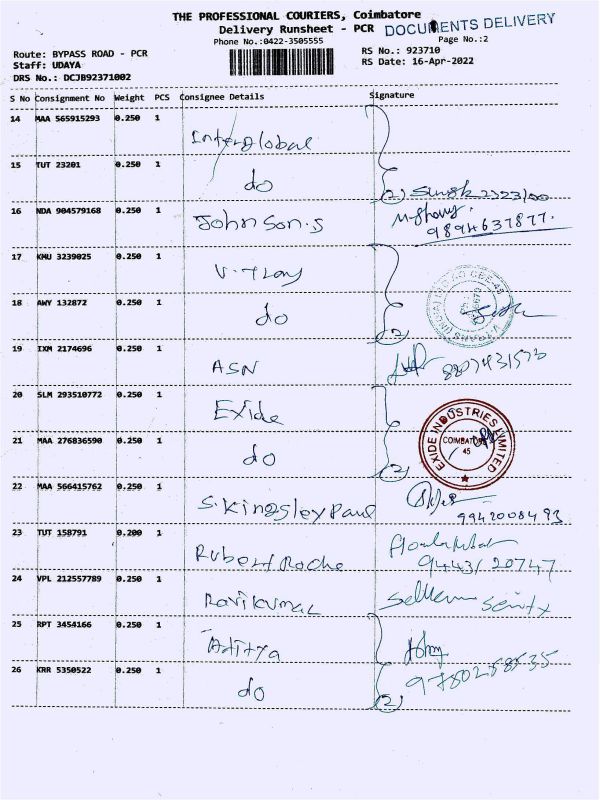 THE PROFESSIONAL COURIERS, Coimbatore
Delivery Runsheet - PCR DOCUMENTS DELIVERY
Phone No.:0422-3505555 Page No.:2
Route: BYPASS ROAD - PCR RS No.: 923710
Staff: UDAYA RS Date: 16-Apr-2022
DRS No.: DCJB92371002
S No Consignment No Weight PCS Consignee Details Signature
14 MAA 565915293 0.250 1 Interglobal
15 TUT 23201 0.250 1 do (2)
16 NDA 904579168 0.250 1 Johnson.s 9894637877.
17 KMU 3239025 0.250 1
18 AWY 132872 0.250 1 do (2)
19 IXM 2174696 0.250 1 ASN
20 SLM 293510772 0.250 1 Exide
EXIDE INDUSTRIES LIMITED
COIMBATORE
45
21 MAA 276836590 0.250 1 do (2)
22 MAA 566415762 0.250 1 S.Kingsley Paul 9942008493
23 TUT 158791 0.200 1 Rubert Roche 9443120747
24 VPL 212557789 0.250 1 Ravikumar
25 RPT 3454166 0.250 1 Aditya
26 KRR 5350522 0.250 1 do (2)